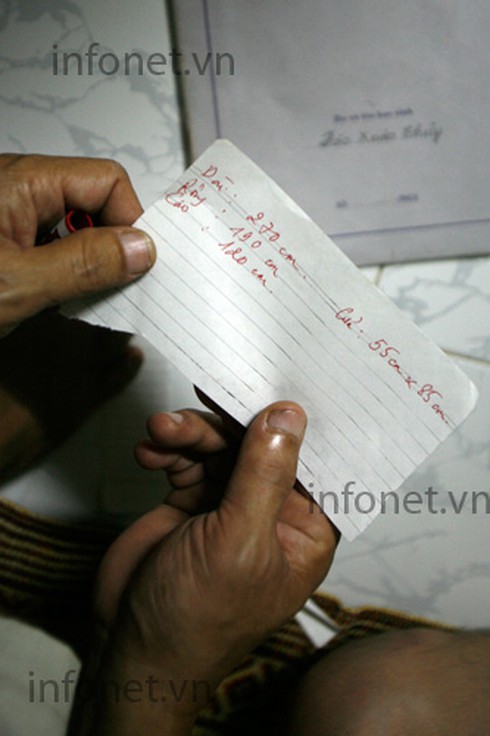 infonet.vn
Họ và tên học sinh
Dài: 270 cm.
Rộng: 190 cm
Cao: 120 cm.
Cửa: 55cm x 85cm
infonet.vn
infonet.vn